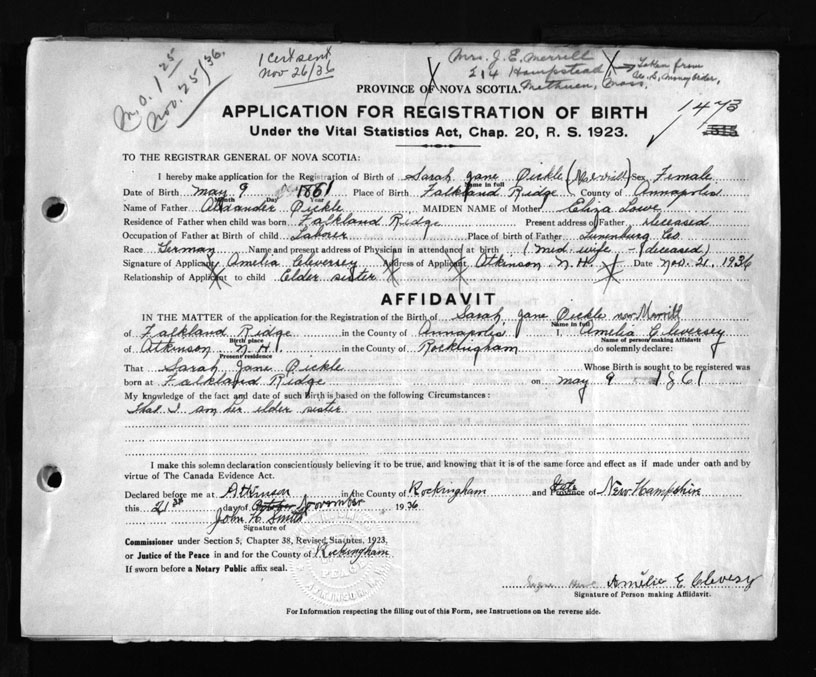 M.O. 1 25
Nov. 25/36.
1 Cert sent
Nov 26/36
Mrs. J. E. Merrill
214 Hampstead
Methuen, Mass.
Taken from
U.S. money order,
PROVINCE OF NOVA SCOTIA.
1473
515
APPLICATION FOR REGISTRATION OF BIRTH
Under the Vital Statistics Act, Chap. 20, R. S. 1923.
TO THE REGISTRAR GENERAL OF NOVA SCOTIA:
I hereby make application for the Registration of Birth of Sarah Jane Pickle (Merrill) Sex Female
Name in full
Date of Birth May 9 1861 Place of Birth Falkland Ridge County of Annapolis
Month Day Year
Name of Father Alexander Pickle MAIDEN NAME of Mother Eliza Lowe
Residence of Father when child was born Falkland Ridge Present address of Father deceased
Occupation of Father at Birth of child Laborer Place of birth of Father Lunenburg Co.
Race German Name and present address of Physician in attendance at birth (mid wife - (deceased)
Signature of Applicant Amelia Cleversey Address of Applicant Atkinson N.H. Date Nov. 21, 1936
Relationship of Applicant to child Elder sister
AFFIDAVIT
IN THE MATTER of the application for the Registration of the Birth of Sarah Jane Pickle now Merrill
Name in full
of Falkland Ridge in the County of Annapolis I, Amelia E. Cleversey
Birth place Name of person making Affidavit
of Atkinson N.H. in the County of Rockingham do solemnly declare:
Present residence
That Sarah Jane Pickle Whose Birth is sought to be registered was
born at Falkland Ridge on May 9 1861
My knowledge of the fact and date of such Birth is based on the following Circumstances:
That I am her elder sister
I make this solemn declaration conscientiously believing it to be true, and knowing that it is of the same force and effect as if made under oath and by
virtue of The Canada Evidence Act.
Declared before me at Atkinson in the County of Rockingham and State Province of New Hampshire
this 21st day of October November 1936
John H. Smith
Signature of
Commissioner under Section 5, Chapter 38, Revised Statutes, 1923,
or Justice of the Peace in and for the County of Rockingham
If sworn before a Notary Public affix seal.
Amelia E Cleversy
Signature of Person making Affidavit.
For Information respecting the filling out of this Form, see Instructions on the reverse side.